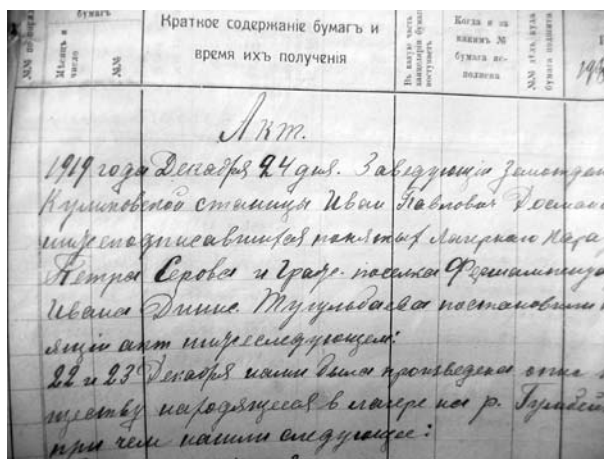 №№ по поряд
бумагъ
Мѣсяцъ и число
№№
Краткое содержаніе бумагъ и
время ихъ полученія
Въ какую часть канцеляріи бумага поступаетъ
Когда и за какимъ № бумага исполнена
№№ дѣлъ, куда бумага подшита
Актъ.
1919 года Декабря 24 дня. Заведующій
Куликовской станицы Иван Павлович
нижеподписавшихся понятых лагернаго
Петра Серова и Граж. поселка
Ивана Дэнис. Тугульбаева постановили
ящій акт нижеследующем:
22 и 23 Декабря нами была произведена опис
ществу находящееся в лагере на р. Гумбей
при чем нашли следующее: